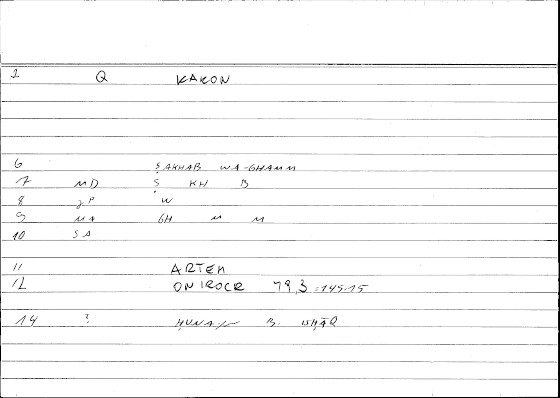 1 Q KAKON
6 ṢAKHAB WA-GHAMM
7 MD Ṣ KH B
8 JP W
9 MA GH M M
10 SA
11 ARTEM
12 ONIROCR 79,3 :145.15
14 ? ḤUNAYN B. ISḤĀQ